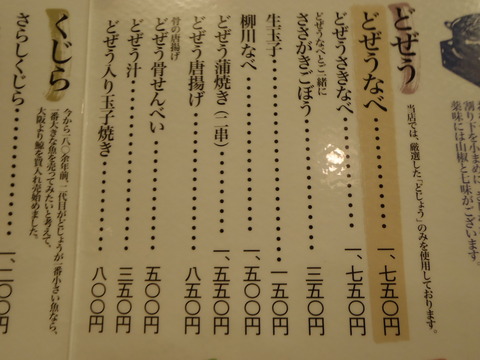 割り下を小まめに
薬味には山椒と七味がございます。
どぜう
当店では、厳選した「どじょう」のみを使用しております。
どぜうなべ・・・・・・・・・・一、七五〇円
どぜうさきなべ・・・・・・・・一、七五〇円
どぜうなべとご一緒に
ささがきごぼう・・・・・・・・三五〇円
生玉子・・・・・・・・・・・・一五〇円
柳川なべ・・・・・・・・・・・一、五〇〇円
どぜう蒲焼き(二串)・・・・・一、五五〇円
どぜう唐揚げ・・・・・・・・・八五〇円
骨の唐揚げ
どぜう骨せんべい・・・・・・・五〇〇円
どぜう汁・・・・・・・・・・・三五〇円
どぜう入り玉子焼き・・・・・・八〇〇円
くじら
今から一八〇余年前、二代目がどじょうが一番小さい魚なら、
一番大きな魚を売ってみたいと考えて、
大阪より鯨を買入れ売始めました。
さらしくじら・・・・・・・・・一、二〇〇円